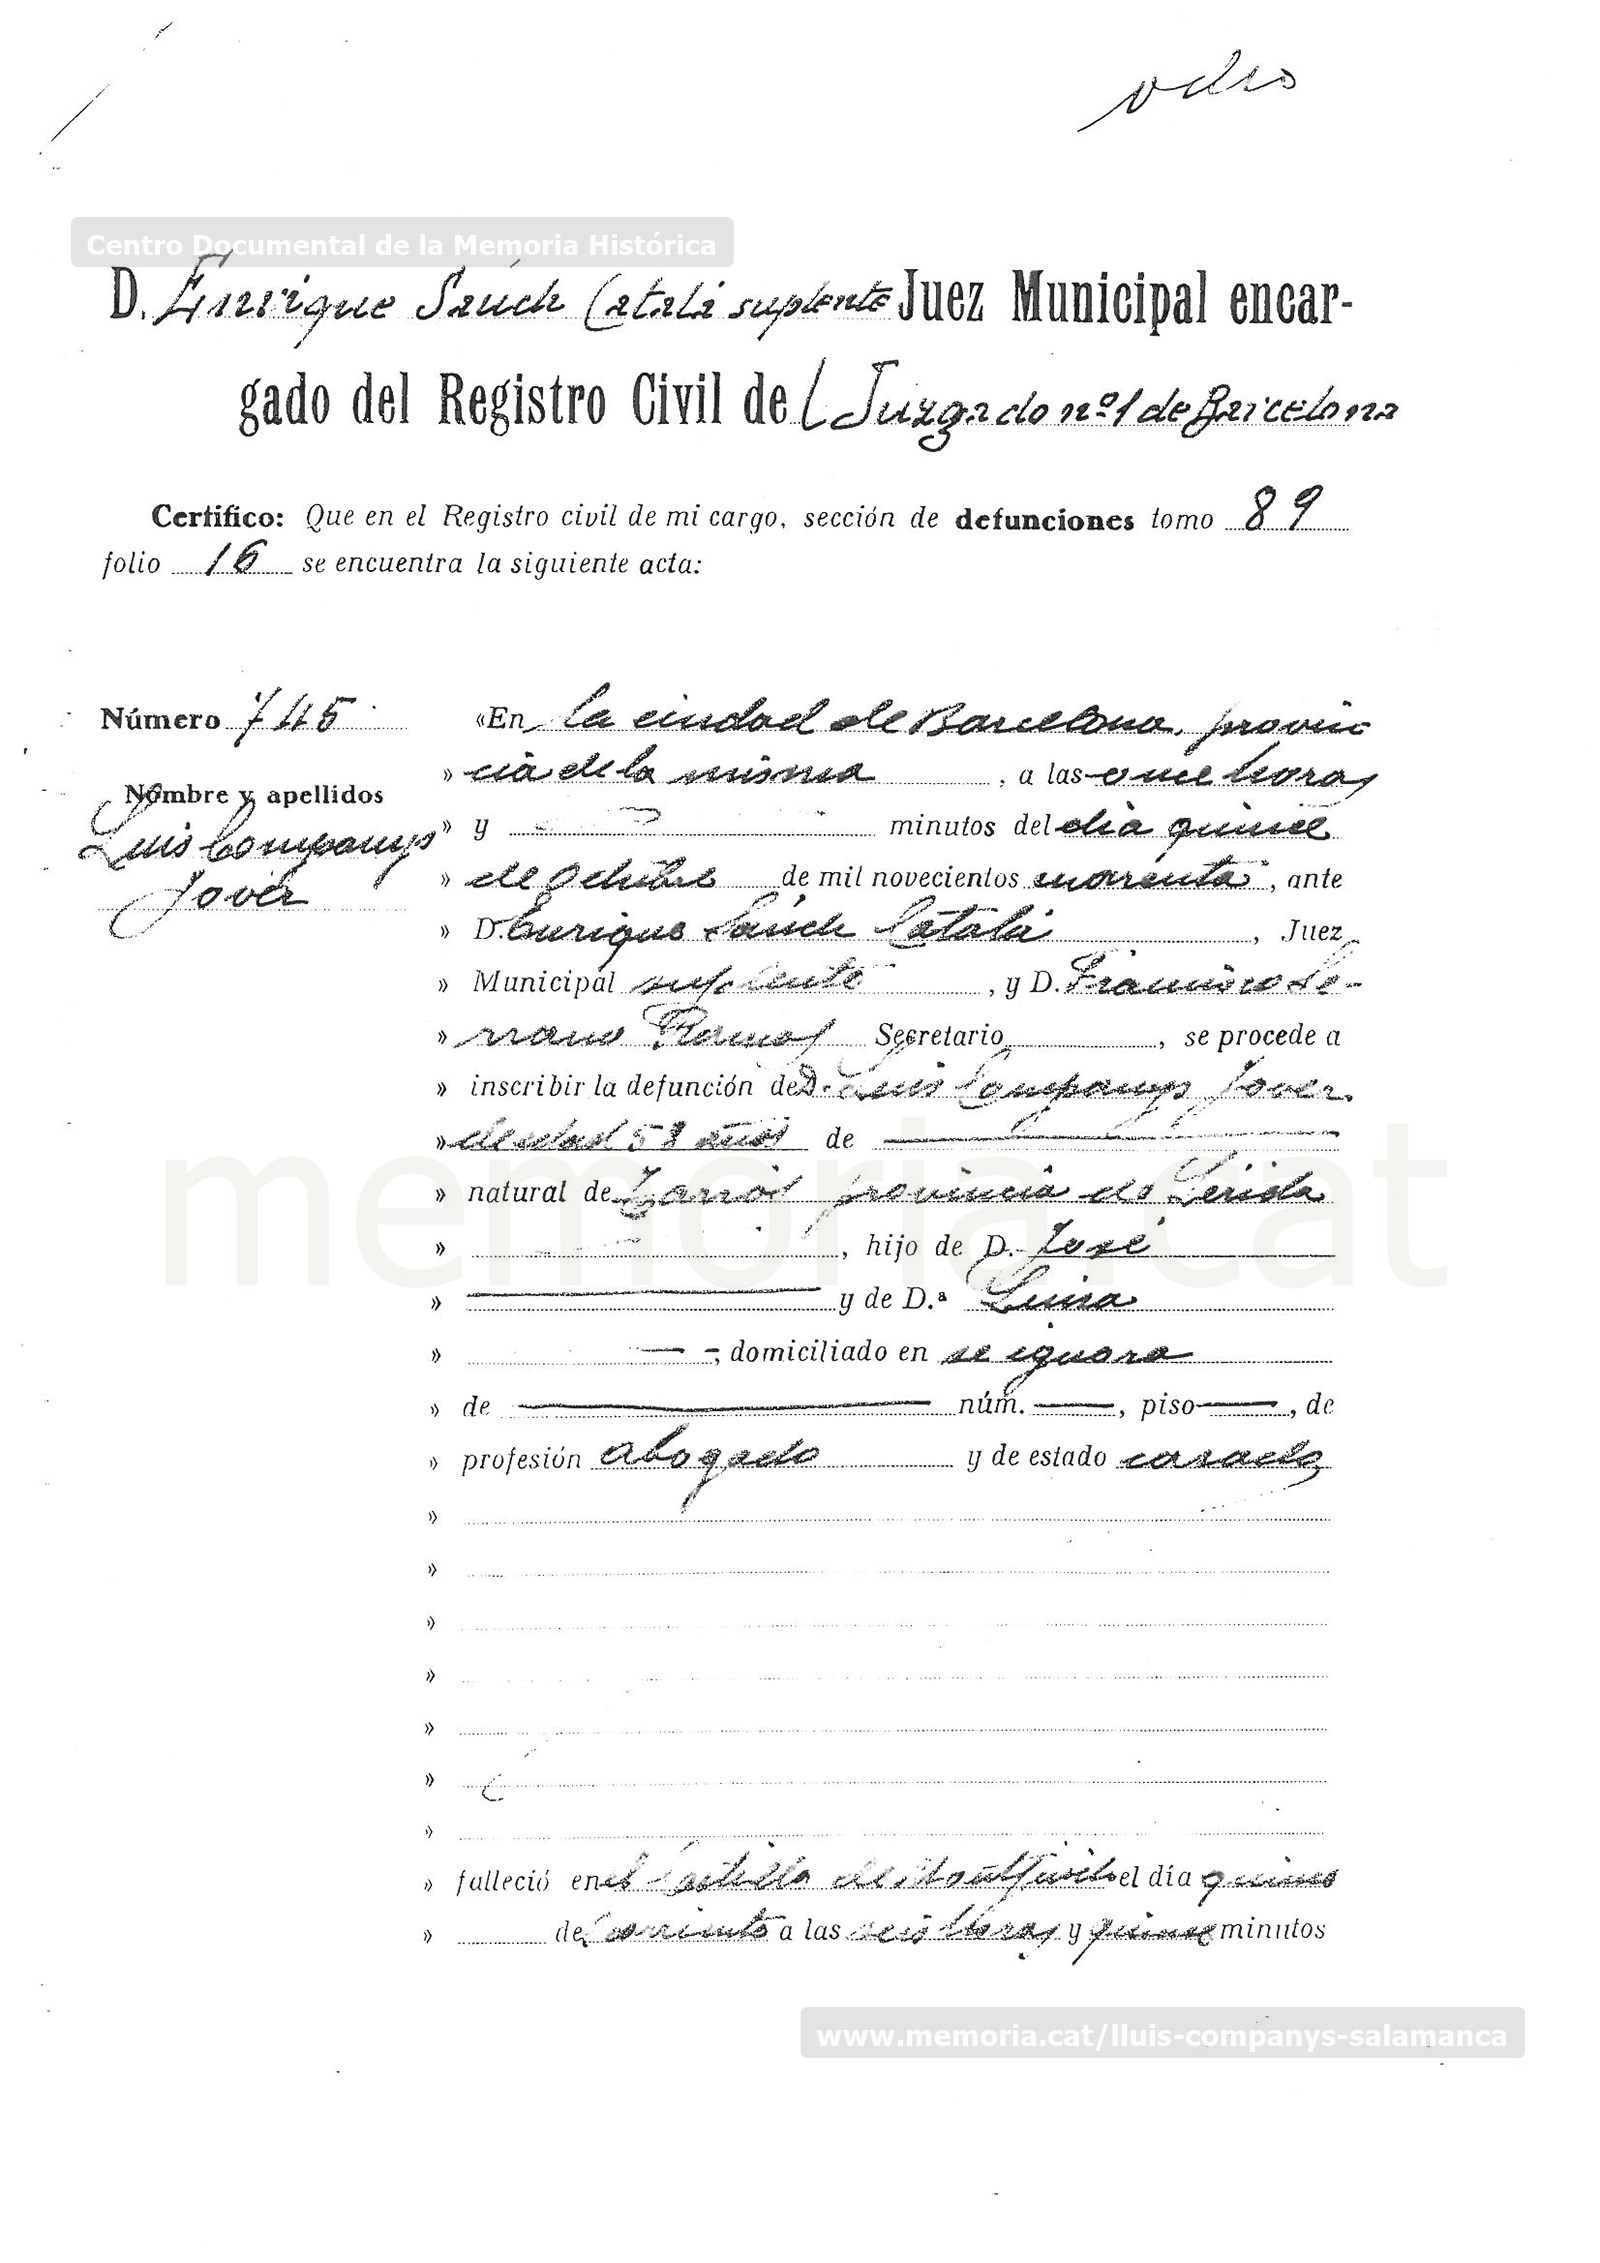 Centro Documental de la Memoria Histórica
D. Enrique Saúch Catalá suplente Juez Municipal encar-
gado del Registro Civil de l Juzgado nº 1 de Barcelona
Certifico: Que en el Registro civil de mi cargo, sección de defunciones tomo 89
folio 16 se encuentra la siguiente acta:
Número 745
Nombre y apellidos
Luis Companys
Jover
«En la ciudad de Barcelona, provin
» cia de la misma , a las once horas
» y minutos del dia quince
» de Octubre de mil novecientos cuarenta , ante
» D. Enrique Saúch Catalá , Juez
» Municipal suplente , y D. Francisco Se-
» rrano Ramos Secretario , se procede a
» inscribir la defunción de D. Luis Companys Jover.
» de edad 58 años de
» natural de Tarrós provincia de Lérida
» , hijo de D. José
» y de D.ª Luisa
» , domiciliado en se ignora
» de núm. , piso , de
» profesión abogado y de estado casado
»
»
»
»
»
»
»
» falleció en el Castillo de Montjuich el día quince
» del corriente a las seis horas y quince minutos
memoria.cat
www.memoria.cat/lluis-companys-salamanca